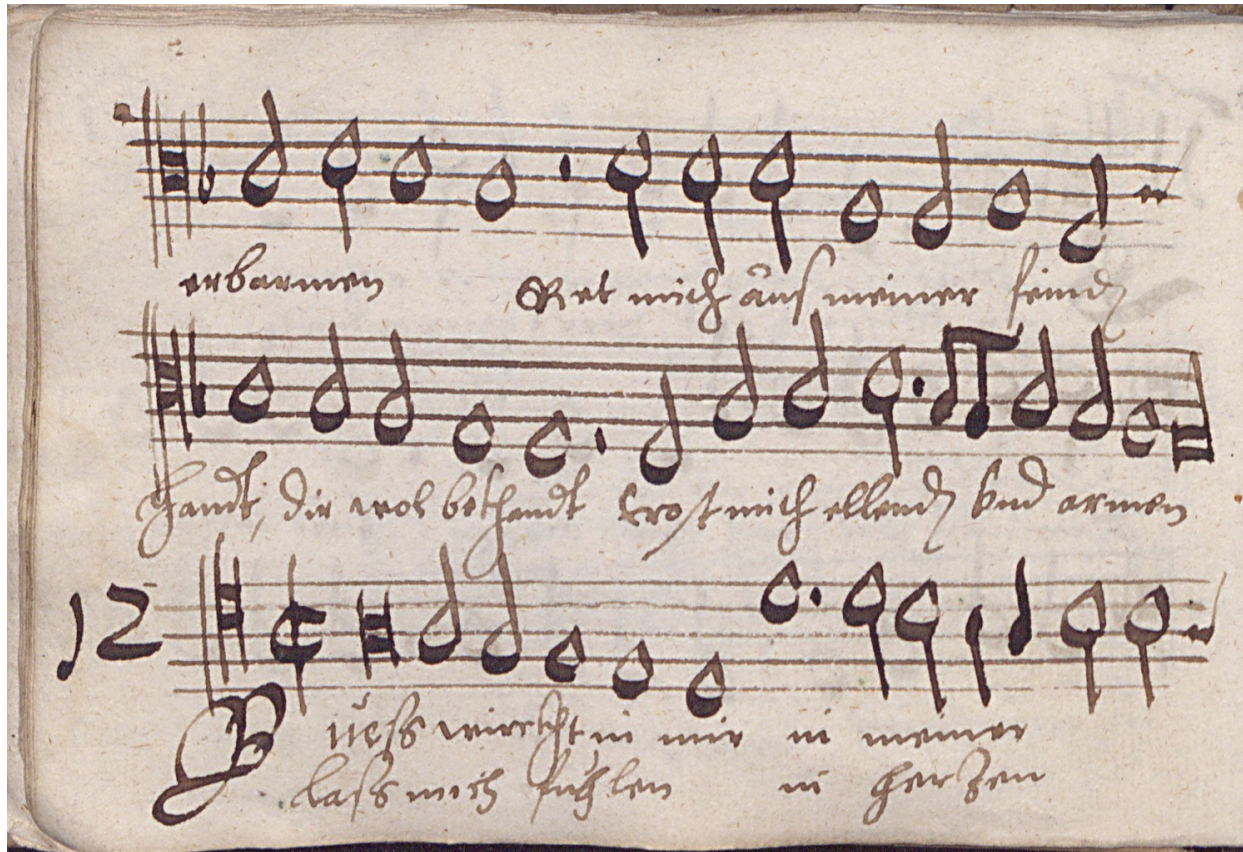 erbarmen Ret mich auß meiner feind
handt, dir wol bekhandt trost mich ellend vnd armen
12
Bueß wirckht in mir in meiner
lass mich fühlen in herzen